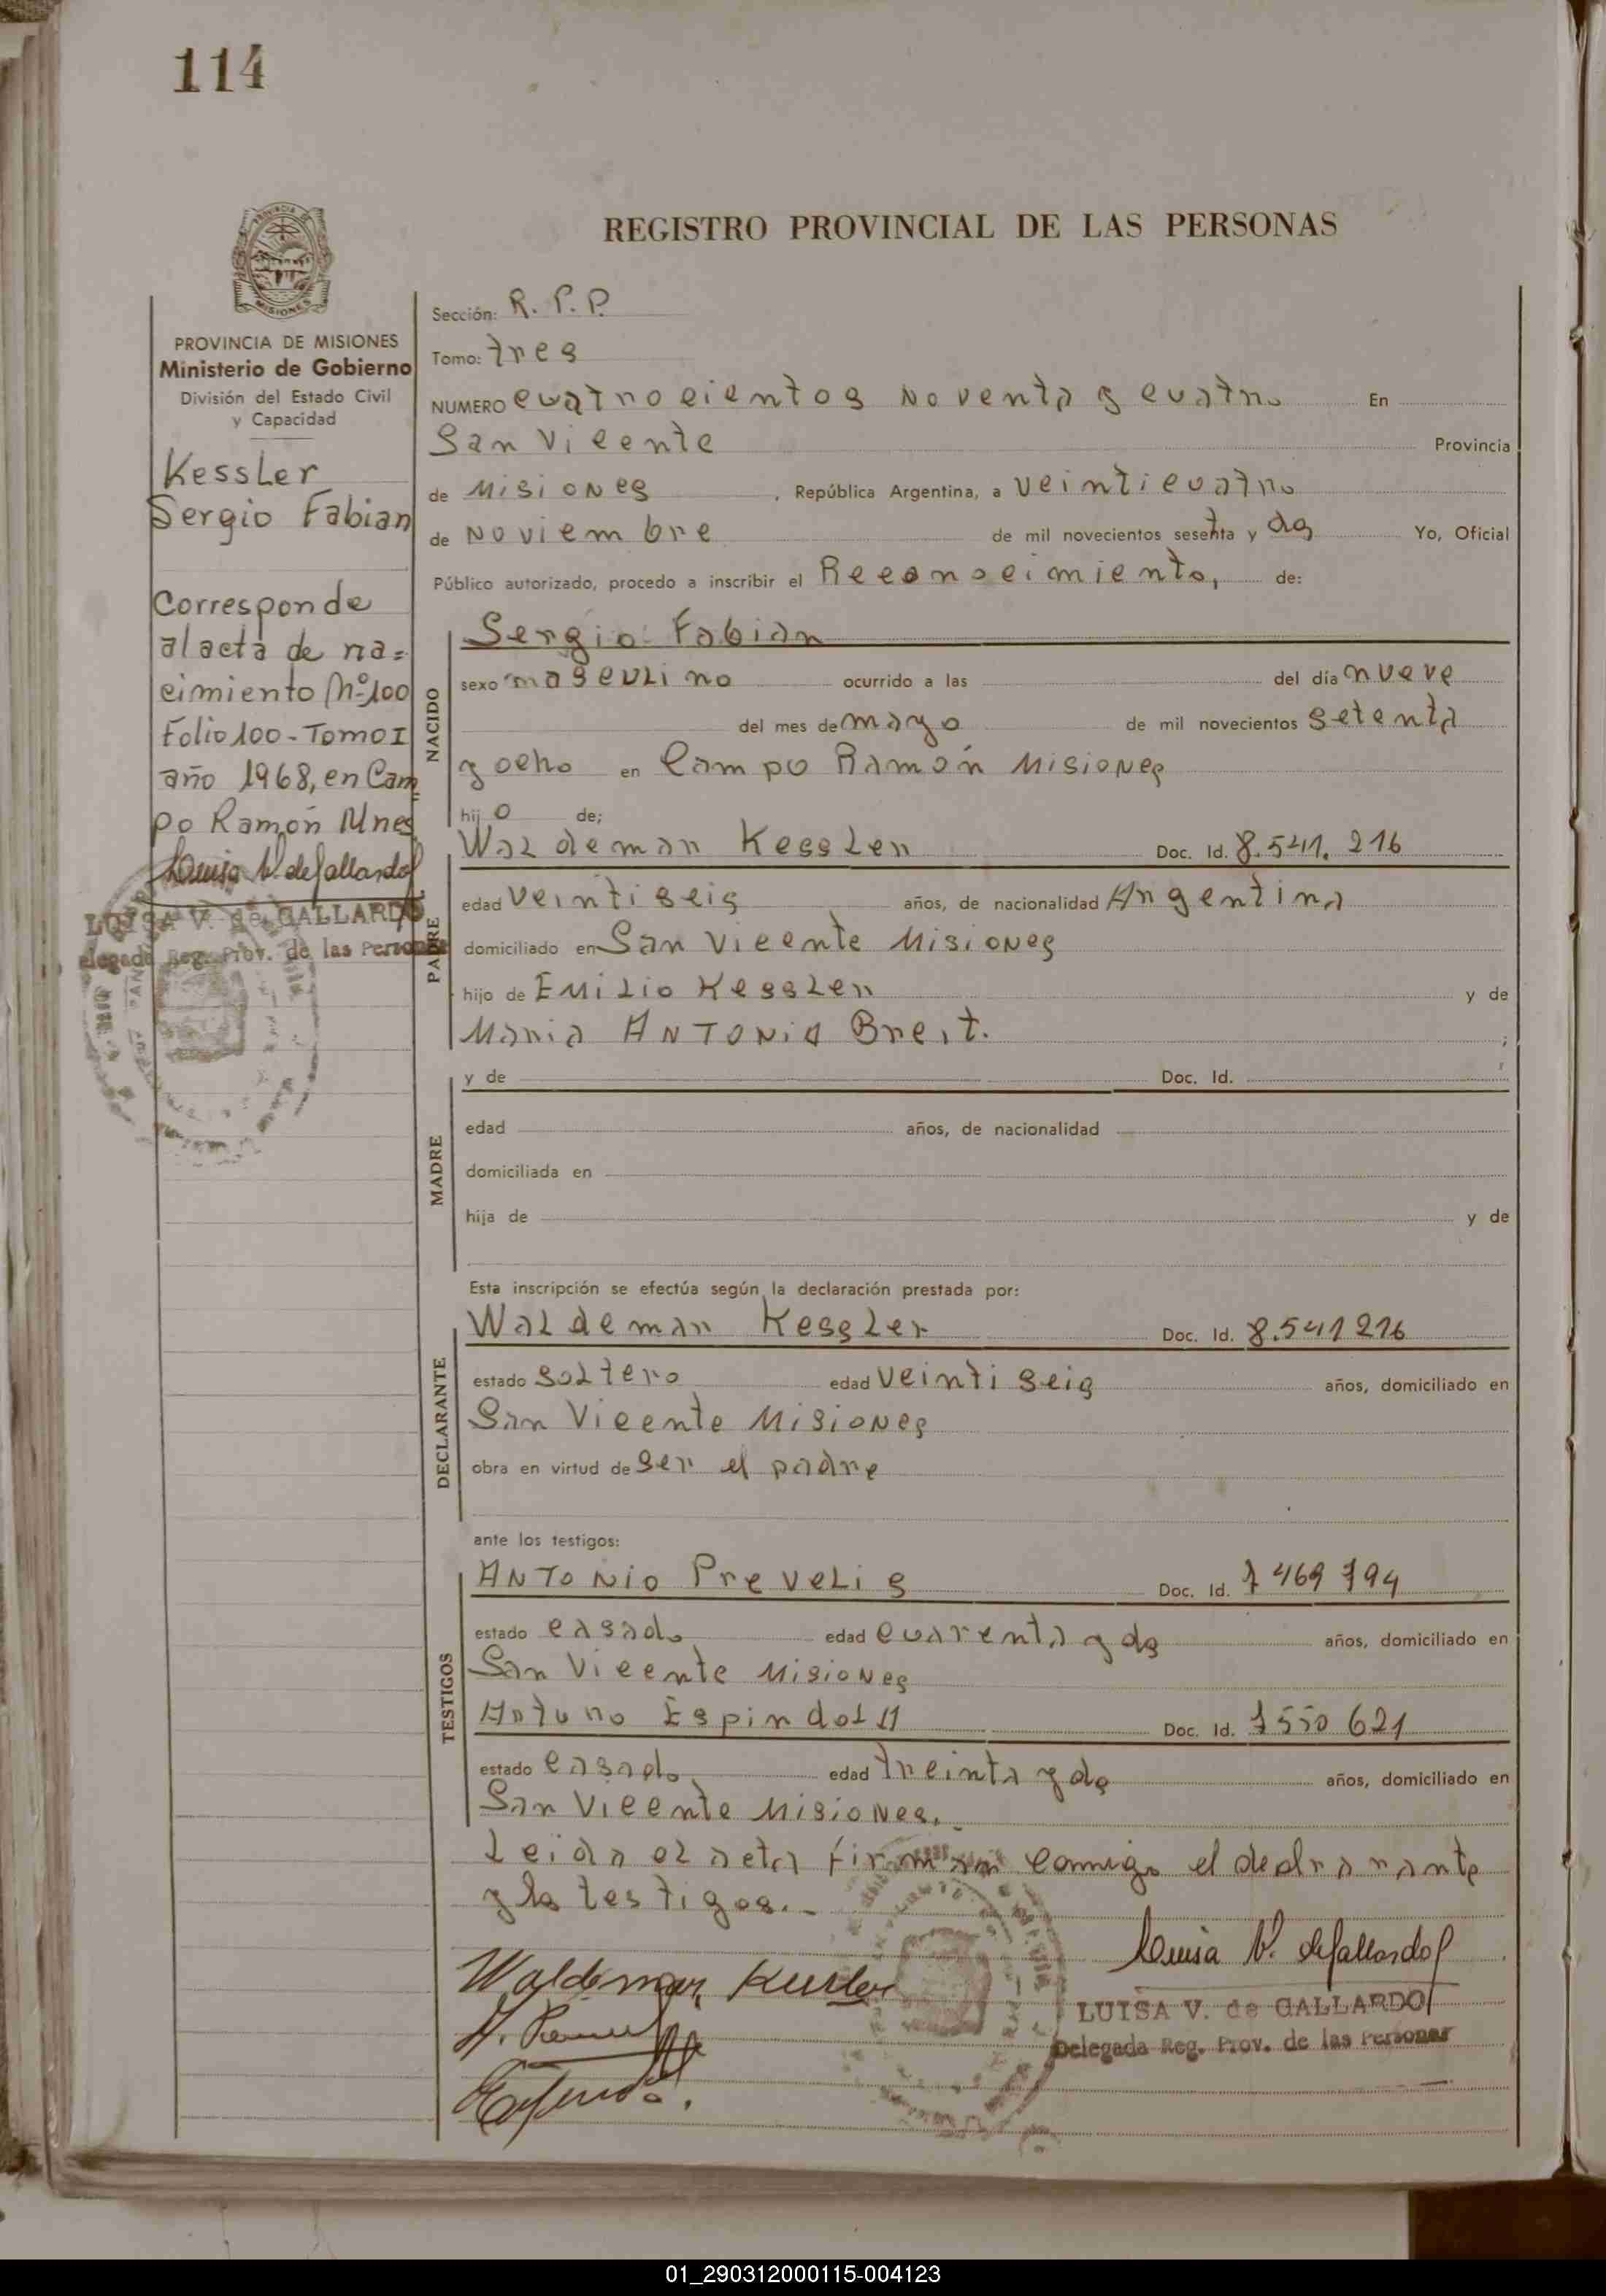 114
REGISTRO PROVINCIAL DE LAS PERSONAS
MISIONES
PROVINCIA DE MISIONES
Ministerio de Gobierno
División del Estado Civil
y Capacidad
Kessler
Sergio Fabian
Corresponde
al acta de na=
cimiento Nº 100
Folio 100 - Tomo I
año 1968, en Cam
po Ramón Mnes
Luisa V. de Gallardo
LUISA V. de GALLARDO
elegada Reg. Prov. de las Personas
Sección: R. P. P.
Tomo: tres
NUMERO cuatrocientos noventa y cuatro En
San Vicente Provincia
de Misiones , República Argentina, a veinticuatro
de noviembre de mil novecientos sesenta y dos Yo, Oficial
Público autorizado, procedo a inscribir el Reconocimiento, de:
NACIDO
Sergio Fabian
sexo masculino ocurrido a las del día nueve
del mes de mayo de mil novecientos setenta
y ocho en Campo Ramón Misiones
hijo de;
PADRE
Waldeman Kessler Doc. Id. 8.541.216
edad veintiseis años, de nacionalidad Argentina
domiciliado en San Vicente Misiones
hijo de Emilio Kessler y de
Maria Antonia Breit. ;
MADRE
y de Doc. Id.
edad años, de nacionalidad
domiciliada en
hija de y de
Esta inscripción se efectúa según la declaración prestada por:
DECLARANTE
Waldeman Kessler Doc. Id. 8.541216
estado soltero edad veintiseis años, domiciliado en
San Vicente Misiones
obra en virtud de ser el padre
ante los testigos:
TESTIGOS
Antonio Prevelis Doc. Id. 7 469 794
estado casado edad cuarenta y dos años, domiciliado en
San Vicente Misiones
Arturo Espindola Doc. Id. 7550 621
estado casado edad treinta y dos años, domiciliado en
San Vicente Misiones.
Leida el acta firman conmigo el declarante
y los testigos.-
Waldemar Kessler
Luisa V. de Gallardo
LUISA V. de GALLARDO
Delegada Reg. Prov. de las Personas
01_290312000115-004123